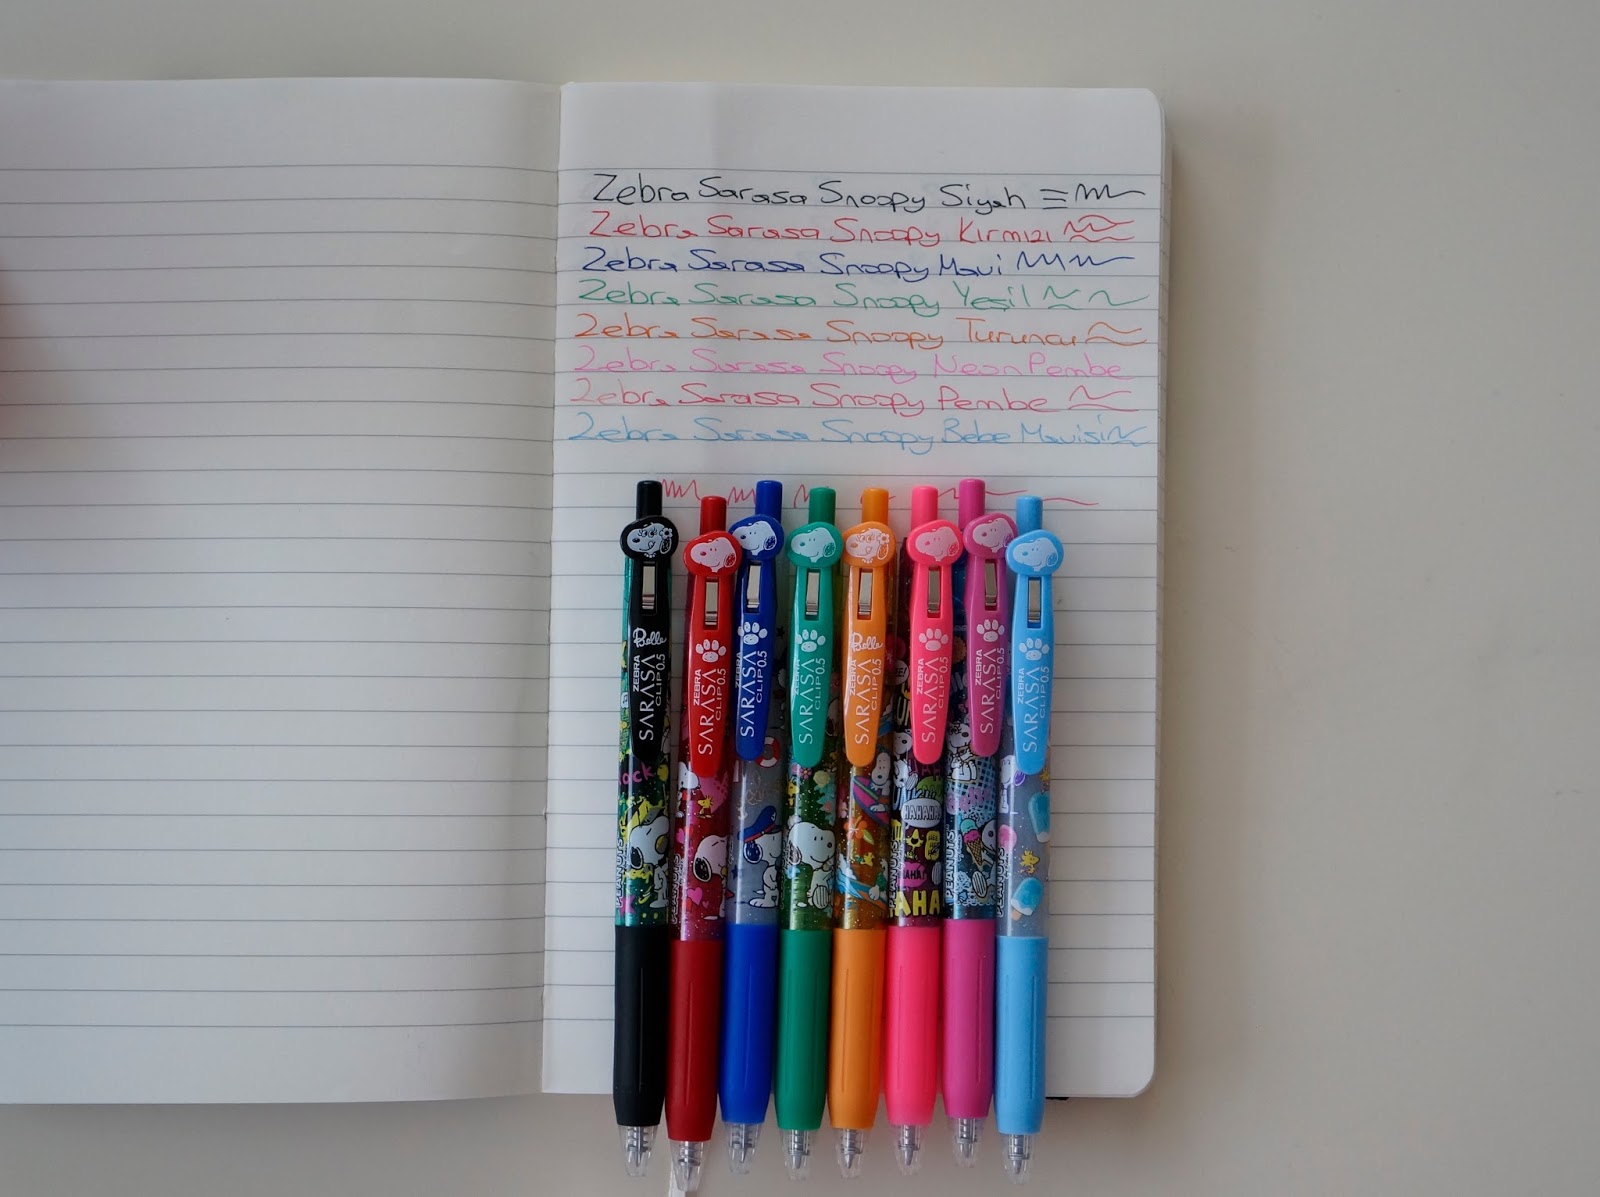 Zebra Sarasa Snoopy Siyah
Zebra Sarasa Snoopy Kırmızı
Zebra Sarasa Snoopy Mavi
Zebra Sarasa Snoopy Yeşil
Zebra Sarasa Snoopy Turuncu
Zebra Sarasa Snoopy Neon Pembe
Zebra Sarasa Snoopy Pembe
Zebra Sarasa Snoopy Bebe Mavisi
Belle ZEBRA SARASA CLIP 0.5
ZEBRA SARASA CLIP 0.5
ZEBRA SARASA CLIP 0.5
ZEBRA SARASA CLIP 0.5
Belle ZEBRA SARASA CLIP 0.5
ZEBRA SARASA CLIP 0.5
ZEBRA SARASA CLIP 0.5
ZEBRA SARASA CLIP 0.5
PEANUTS
PEANUTS
HAHAHA
HAHA!
AHA
PEANUTS
PEANUTS
PEANUTS